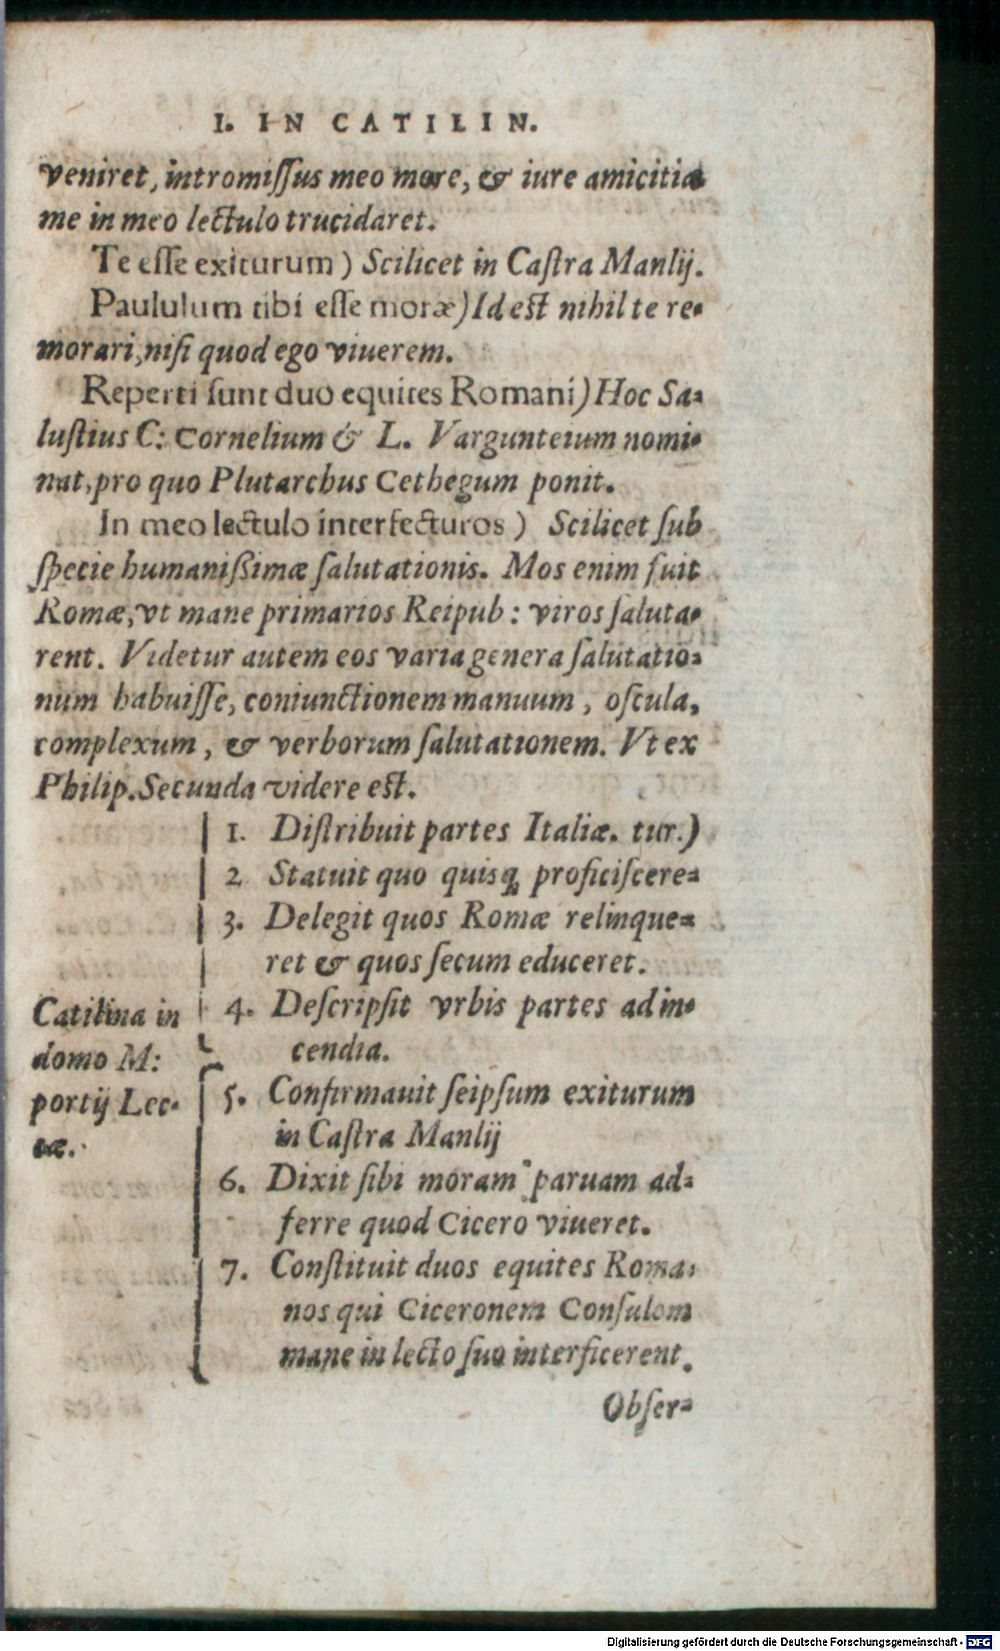 I. IN CATILIN.
veniret, intromiſſus meo more, & iure amicitiæ
me in meo lectulo trucidaret.
Te eſſe exiturum) Scilicet in Caſtra Manlij.
Paululum tibi eſſe moræ) Id eſt nihil te re-
morari, niſi quod ego viuerem.
Reperti ſunt duo equites Romani) Hoc Sa-
luſtius C: Cornelium & L. Vargunteium nomi-
nat, pro quo Plutarchus Cethegum ponit.
In meo lectulo interfecturos) Scilicet ſub
ſpecie humanißimæ ſalutationis. Mos enim fuit
Romæ, vt mane primarios Reipub: viros ſaluta-
rent. Videtur autem eos varia genera ſalutatio-
num habuiſſe, coniunctionem manuum, oſcula,
complexum, & verborum ſalutationem. Vt ex
Philip. Secunda videre eſt.
1. Diſtribuit partes Italiæ. tur.)
2 Statuit quo quisq; proficiſcere-
3. Delegit quos Romæ relinque-
ret & quos ſecum educeret.
4. Deſcripſit vrbis partes ad in-
cendia.
Catilina in
domo M:
portij Lec-
cæ.
5. Confirmauit ſeipſum exiturum
in Caſtra Manlij
6. Dixit ſibi moram paruam ad-
ferre quod Cicero viueret.
7. Conſtituit duos equites Roma-
nos qui Ciceronem Conſulem
mane in lecto ſuo interficerent.
Obſer-
Digitalisierung gefördert durch die Deutsche Forschungsgemeinschaft - DFG